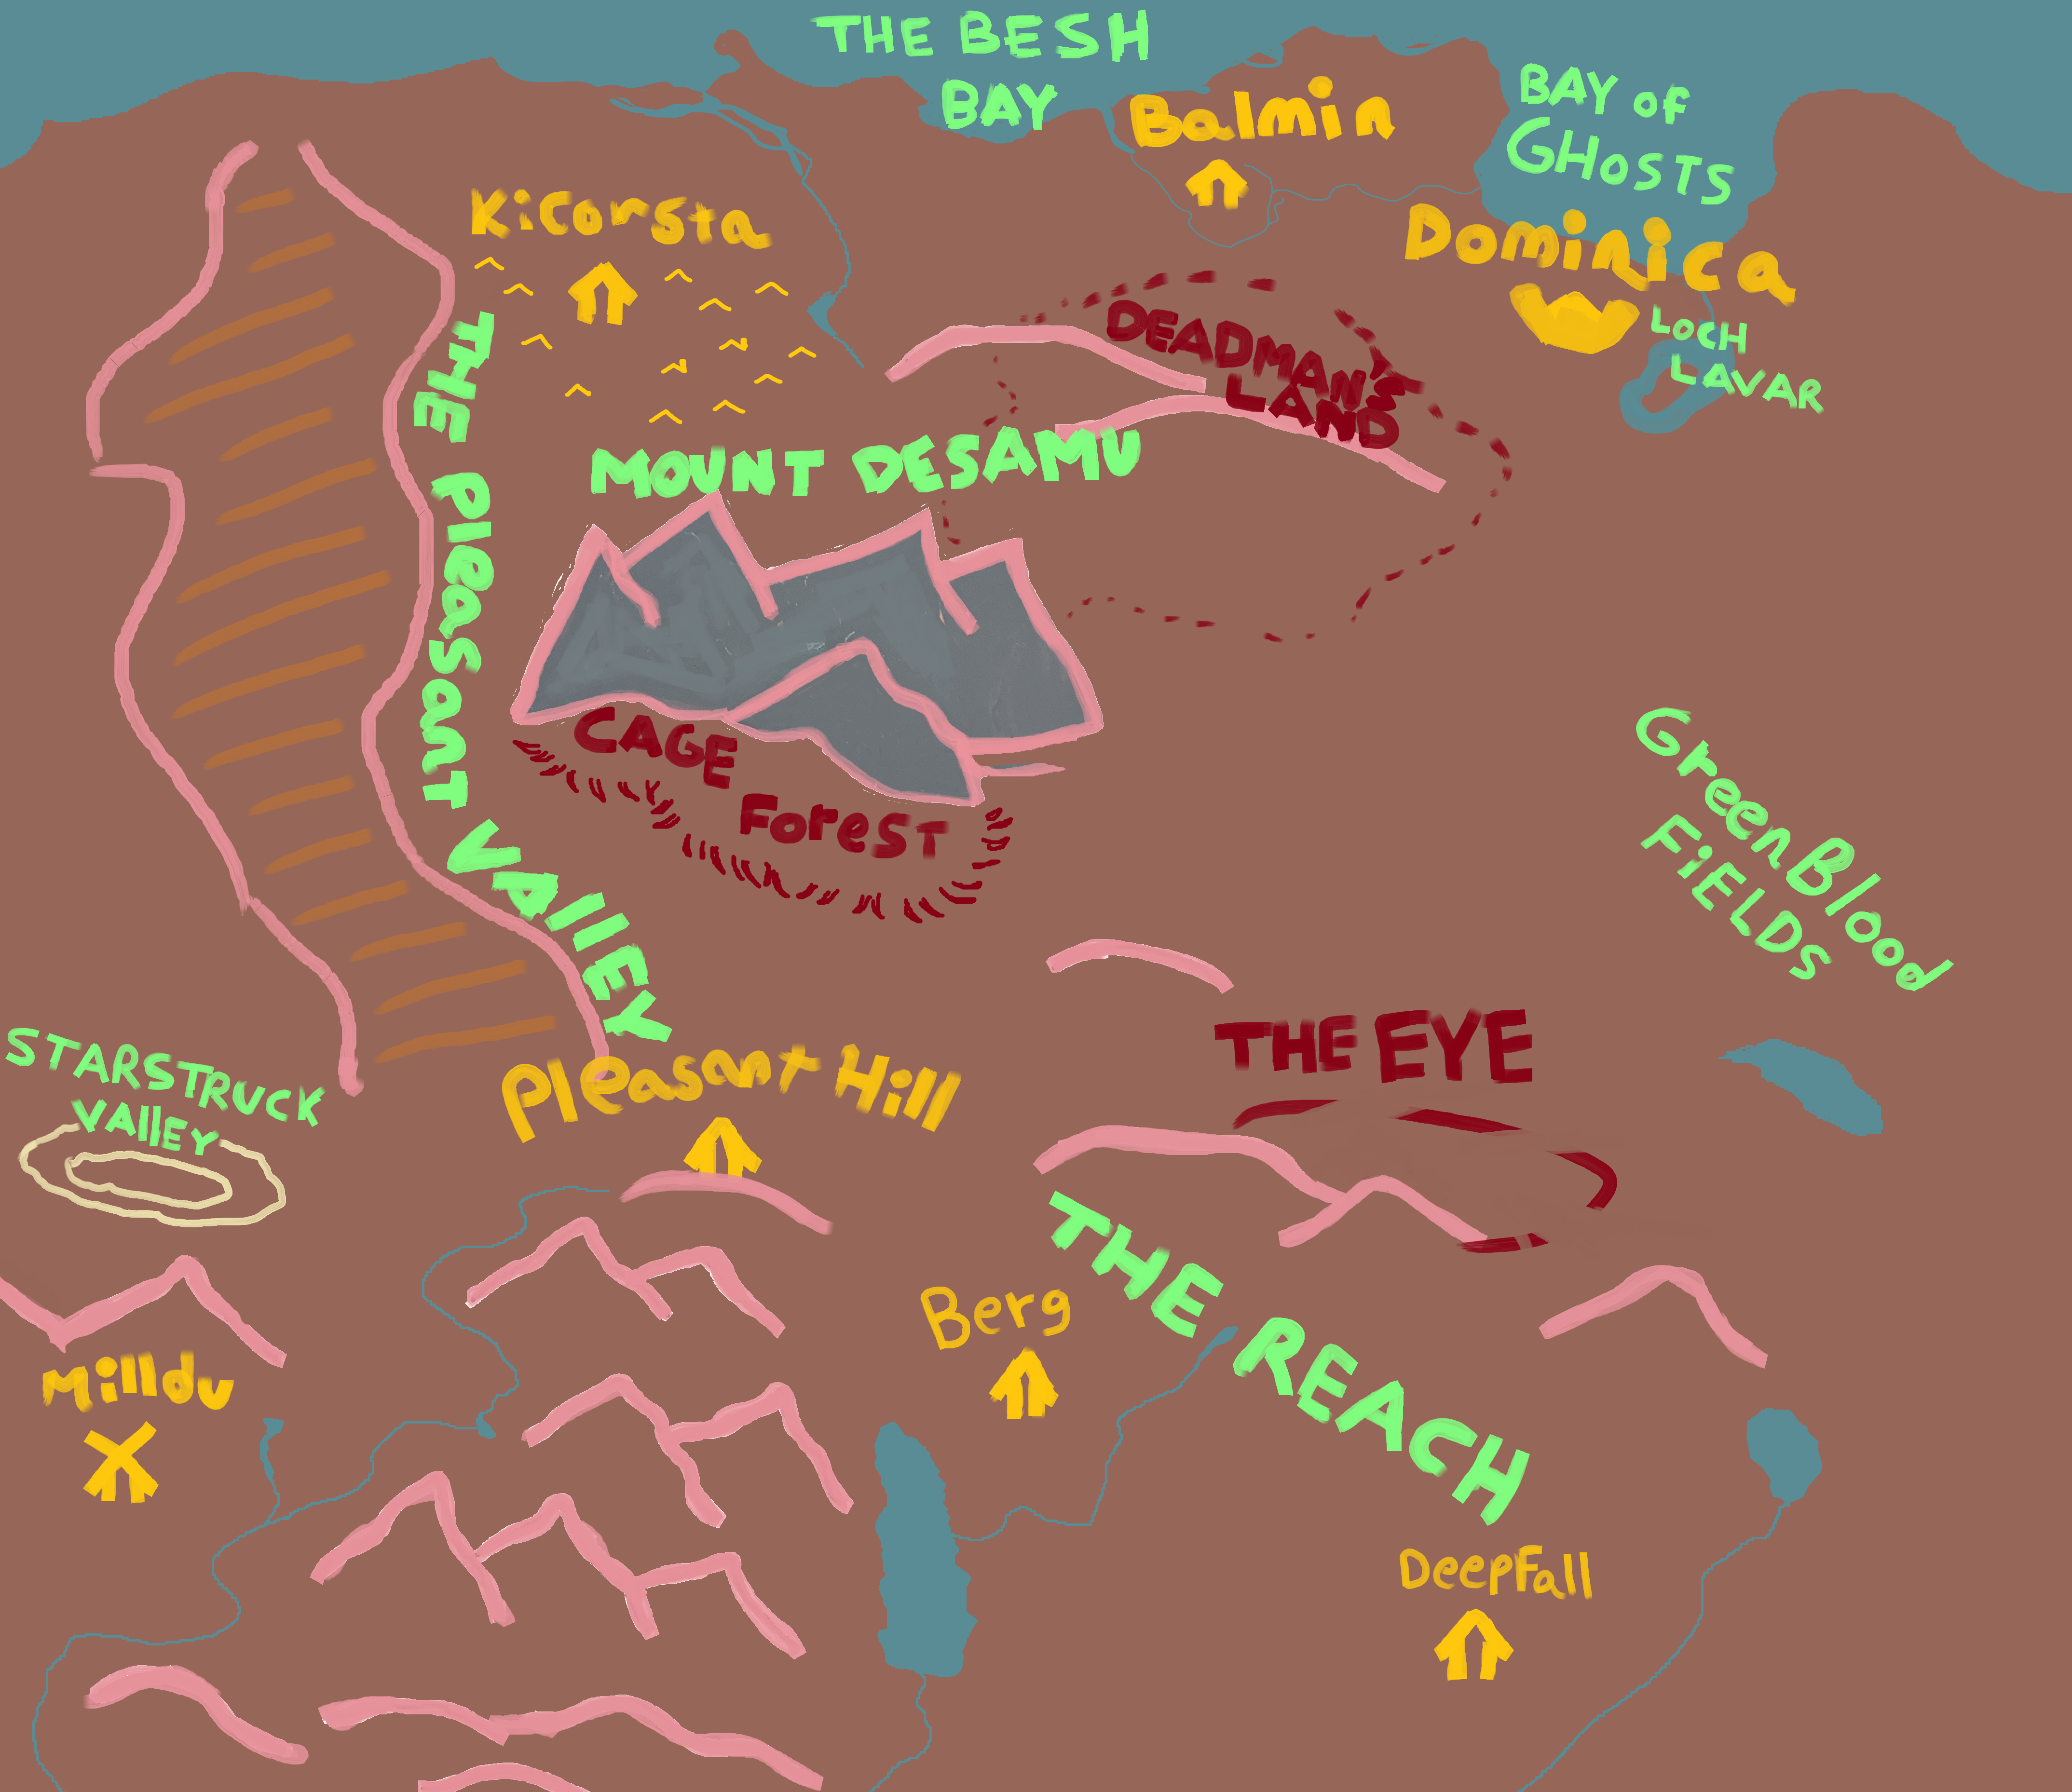 THE BESH
BAY
BAY of
GHOSTS
Balmin
Kicorsta
Dominica
LOCH
LAVAR
DEADMAN'S
LAND
THE PleasanT VAllEY
MOUNT DESAMU
CAGE
ForeST
GreenBlood
FiELDS
THE EYE
STARSTRUCK
VAllEY
Pleasant Hill
THE REACH
Berg
Milldu
DeepFall